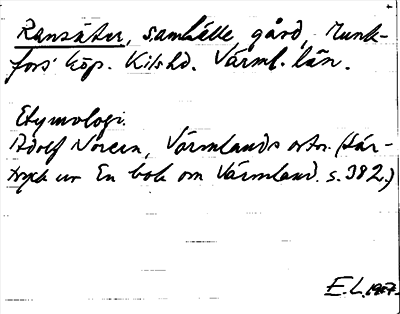 Ransäter, samhälle gård, Munk-
fors köp. Kilshd. Värml. län.
Etymologi.
Adolf Noreen, Värmlands ortn. (Sär-
tryck ur En bok om Värmland. s. 382.)
E.L. 1957.